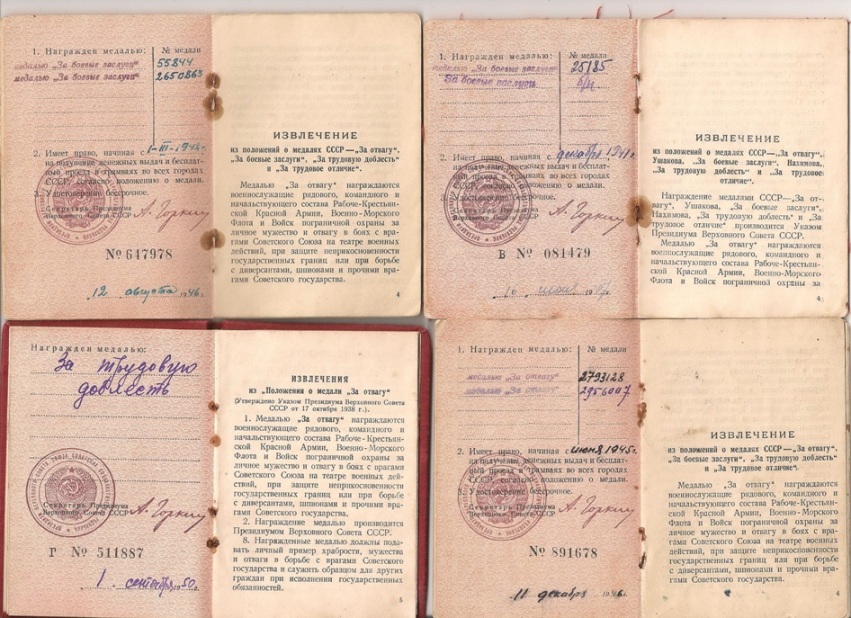 1. Награжден медалью:
№ медали
медалью „За боевые заслуги“
55844
медалью „За боевые заслуги“
2650863
2. Имеет право, начиная с
1-III-1942г.
на получение денежных выдач и бесплат-
ный проезд в трамваях во всех городах
СССР, согласно положению о медали.
3. Удостоверение бессрочное.
Секретарь Президиума
Верховного Совета СССР
А. Горкин
№ 647978
12 августа 1946г.
ИЗВЛЕЧЕНИЕ
из положений о медалях СССР—„За отвагу“,
„За боевые заслуги“, „За трудовую доблесть“
и „За трудовое отличие“.
Медалью „За отвагу“ награждаются
военнослужащие рядового, командного и
начальствующего состава Рабоче-Крестьян-
ской Красной Армии, Военно-Морского
Флота и Войск пограничной охраны за
личное мужество и отвагу в боях с врага-
ми Советского Союза на театре военных
действий, при защите неприкосновенности
государственных границ или при борьбе
с диверсантами, шпионами и прочими вра-
гами Советского государства.
4
1. Награжден медалью:
№ медали
медалью „За боевые заслуги“
25185
За боевые заслуги
б/н
2. Имеет право, начиная с
декабря 1941г.
на получение денежных выдач и бесплат-
ный проезд в трамваях во всех городах
СССР, согласно положению о медали.
3. Удостоверение бессрочное.
Секретарь Президиума
Верховного Совета СССР
А. Горкин
В № 081479
ИЗВЛЕЧЕНИЕ
из положений о медалях СССР—„За отвагу“,
Ушакова, „За боевые заслуги“, Нахимова,
„За трудовую доблесть“ и „За трудовое
отличие“.
Награждение медалями СССР—„За от-
вагу“, Ушакова, „За боевые заслуги“,
Нахимова, „За трудовую доблесть“ и „За
трудовое отличие“ производится Указом
Президиума Верховного Совета СССР.
Медалью „За отвагу“ награждаются
военнослужащие рядового, командного и
начальствующего состава Рабоче-Крестьян-
ской Красной Армии, Военно-Морского
Флота и Войск пограничной охраны за
4
Награжден медалью:
За трудовую
доблесть
Секретарь Президиума
Верховного Совета СССР
А. Горкин
Г № 511887
1 сентября 1950г.
ИЗВЛЕЧЕНИЯ
из „Положения о медали „За отвагу“
(Утверждено Указом Президиума Верховного Совета
СССР от 17 октября 1938 г.).
1. Медалью „За отвагу“ награждаются
военнослужащие рядового, командного и
начальствующего состава Рабоче-Крестьян-
ской Красной Армии, Военно-Морского
Флота и Войск пограничной охраны за
личное мужество и отвагу в боях с врагами
Советского Союза на театре военных дей-
ствий, при защите неприкосновенности
государственных границ или при борьбе
с диверсантами, шпионами и прочими вра-
гами Советского государства.
2. Награждение медалью производится
Президиумом Верховного Совета СССР.
3. Награжденные медалью должны пода-
вать личный пример храбрости, мужества
и отваги в борьбе с врагами Советского
государства и служить образцом для других
граждан при исполнении государственных
обязанностей.
5
1. Награжден медалью:
№ медали
медалью „За отвагу“
2793128
медалью „За отвагу“
2956007
2. Имеет право, начиная с
июня 1945г.
на получение денежных выдач и бесплат-
ный проезд в трамваях во всех городах
СССР, согласно положению о медали.
3. Удостоверение бессрочное.
Секретарь Президиума
Верховного Совета СССР
А. Горкин
№ 891678
11 декабря 1946г.
ИЗВЛЕЧЕНИЕ
из положений о медалях СССР—„За отвагу“,
„За боевые заслуги“, „За трудовую доблесть“
и „За трудовое отличие“.
Медалью „За отвагу“ награждаются
военнослужащие рядового, командного и
начальствующего состава Рабоче-Крестьян-
ской Красной Армии, Военно-Морского
Флота и Войск пограничной охраны за
личное мужество и отвагу в боях с врага-
ми Советского Союза на театре военных
действий, при защите неприкосновенности
государственных границ или при борьбе
с диверсантами, шпионами и прочими вра-
гами Советского государства.
4